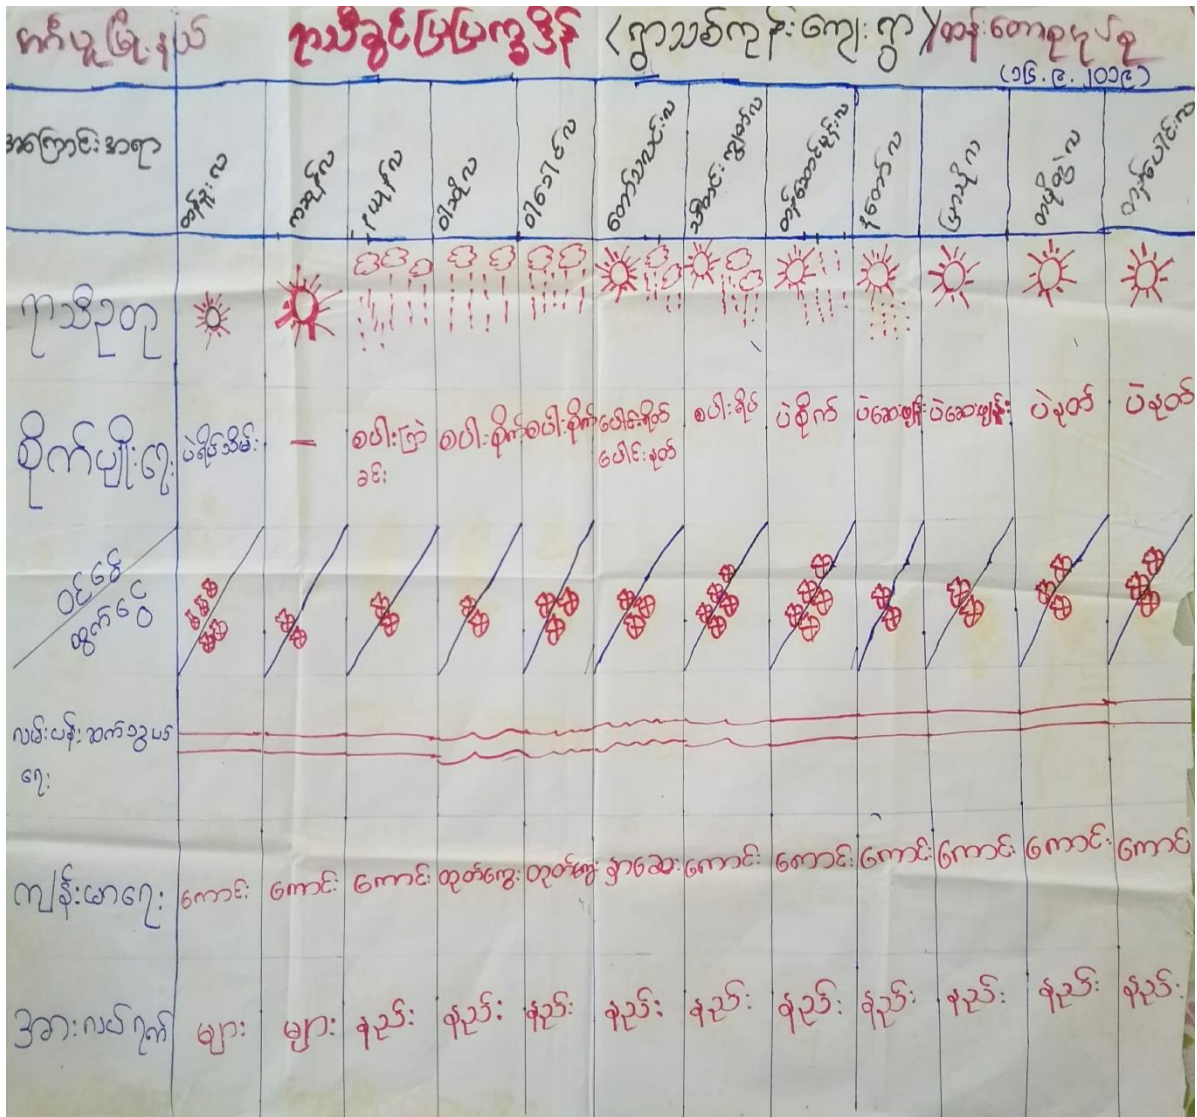 ရာသီခွင်ပြပြက္ခဒိန် (ရွာသစ်ကုန်းကျေးရွာ)
(၁၆.၉.၂၀၁၉)
အကြောင်းအရာ တန်ခူးလ ကဆုန်လ နယုန်လ ဝါဆိုလ ဝါခေါင်လ တော်သလင်းလ သီတင်းကျွတ်လ တန်ဆောင်မုန်းလ နတ်တော်လ ပြာသိုလ တပို့တွဲလ တပေါင်းလ
ရာသီဥတု
စိုက်ပျိုးရေး ပဲရိတ်သိမ်း - စပါးကြဲခင်း စပါးစိုက် စပါးစိုက် ပေါင်းရိတ် ပေါင်းနုတ် စပါးရိတ် ပဲစိုက် ပဲဆေးဖျန်း ပဲဆေးဖျန်း ပဲနုတ် ပဲနုတ်
ဝင်ငွေ
ထွက်ငွေ
လမ်းပန်းဆက်သွယ်
ရေး
ကျန်းမာရေး ကောင်း ကောင်း ကောင်း တုတ်ကွေး တုတ်ကွေး ကောင်း ကောင်း ကောင်း ကောင်း ကောင်း ကောင်း
အားလပ်ရက် များ များ နည်း နည်း နည်း နည်း နည်း နည်း နည်း နည်း နည်း နည်း